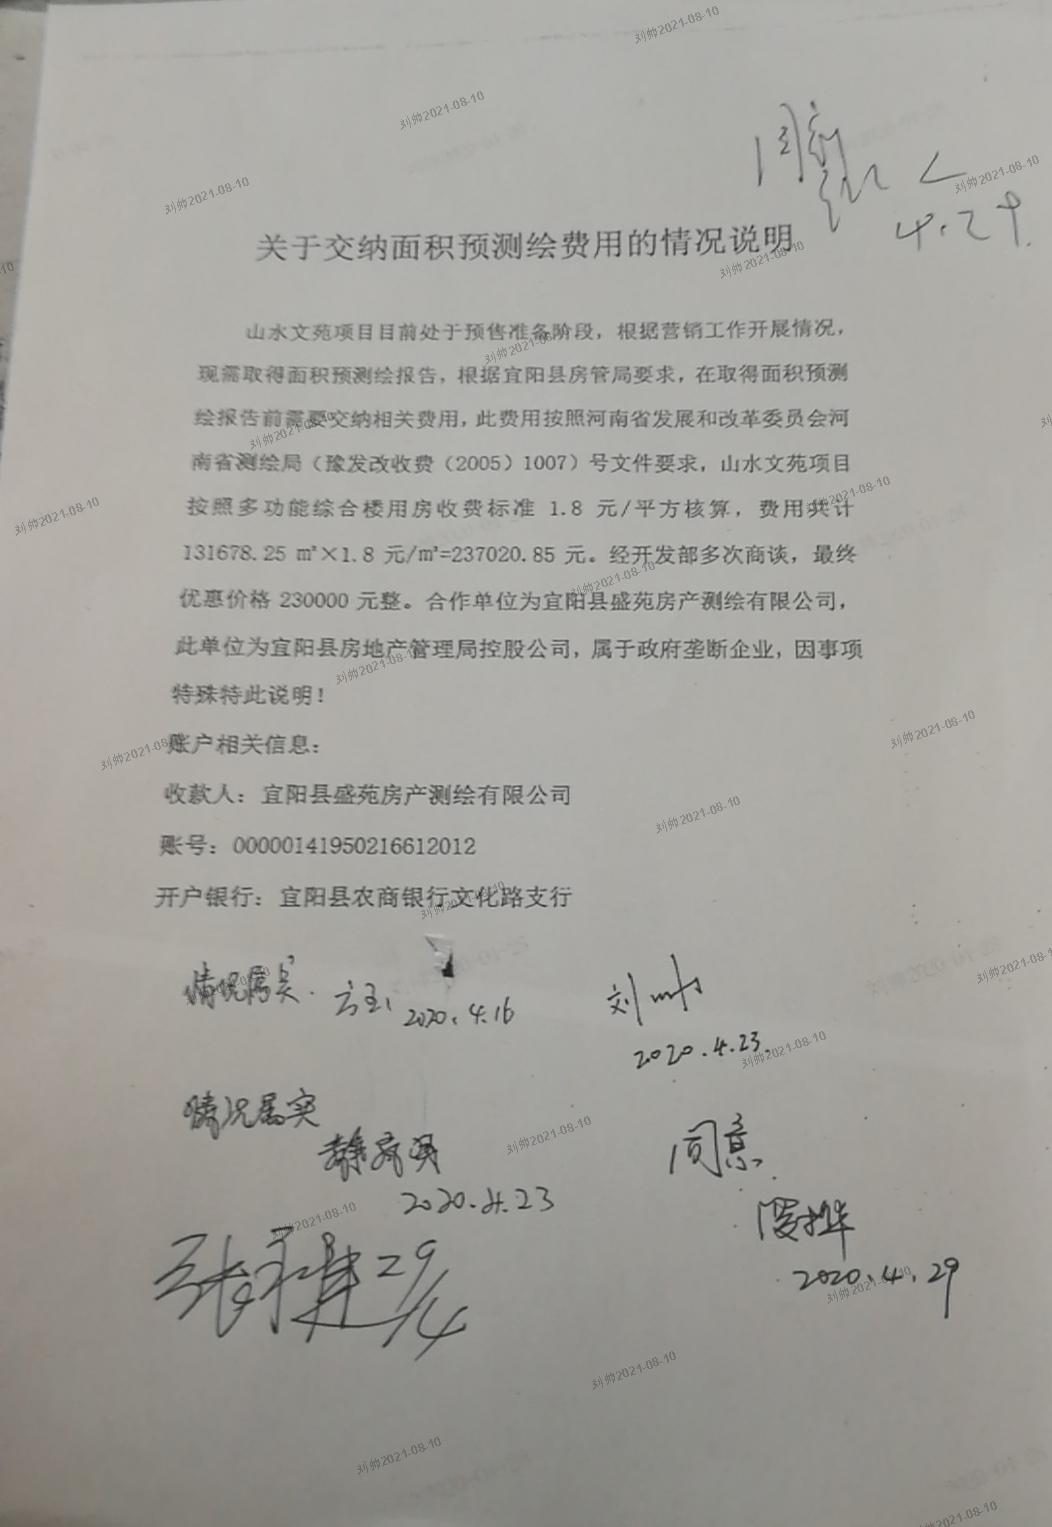 关于交纳面积预测绘费用的情况说明
4.29.
山水文苑项目目前处于预售准备阶段，根据营销工作开展情况，
现需取得面积预测绘报告，根据宜阳县房管局要求，在取得面积预测
绘报告前需要交纳相关费用，此费用按照河南省发展和改革委员会河
南省测绘局（豫发改收费（2005）1007）号文件要求，山水文苑项目
按照多功能综合楼用房收费标准 1.8 元/平方核算，费用共计
131678.25 ㎡×1.8 元/㎡=237020.85 元。经开发部多次商谈，最终
优惠价格 230000 元整。合作单位为宜阳县盛苑房产测绘有限公司，
此单位为宜阳县房地产管理局控股公司，属于政府垄断企业，因事项
特殊特此说明！
账户相关信息：
收款人：宜阳县盛苑房产测绘有限公司
账号：00000141950216612012
开户银行：宜阳县农商银行文化路支行
情况属实. 2020.4.16
刘帅
2020.4.23.
情况属实
2020.4.23
同意
2020.4.29
29/4
刘帅2021-08-10